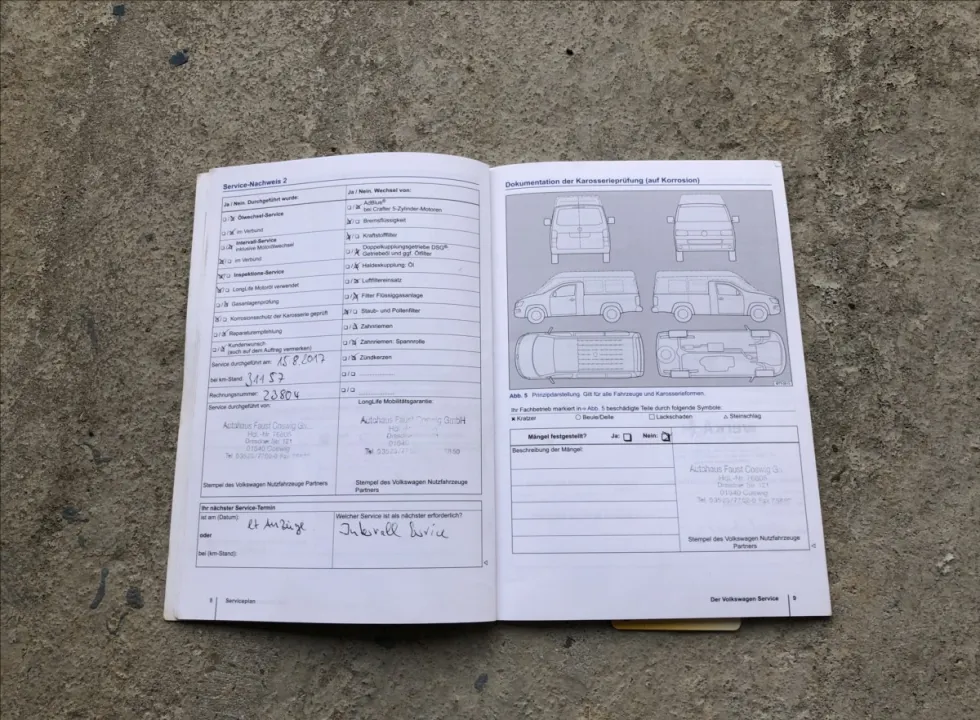 Service-Nachweis 2
Ja / Nein. Durchgeführt wurde:
Ölwechsel-Service
im Verbund
Intervall-Service
inklusive Motorölwechsel
im Verbund
Inspektions-Service
LongLife Motoröl verwendet
Gasanlagenprüfung
Korrosionsschutz der Karosserie geprüft
Reparaturempfehlung
Kundenwunsch
(auch auf dem Auftrag vermerken)
Service durchgeführt am: 15.8.2017
bei km-Stand: 31157
Rechnungsnummer: 23804
Service durchgeführt von:
Autohaus Faust Coswig GmbH
Dresdner Str. 121
01640 Coswig
Stempel des Volkswagen Nutzfahrzeuge Partners
Ja / Nein. Wechsel von:
AdBlue®
bei Crafter 5-Zylinder-Motoren
Bremsflüssigkeit
Kraftstofffilter
Doppelkupplungsgetriebe DSG®:
Getriebeöl und ggf. Ölfilter
Haldexkupplung: Öl
Luftfiltereinsatz
Filter Flüssiggasanlage
Staub- und Pollenfilter
Zahnriemen
Zahnriemen: Spannrolle
Zündkerzen
LongLife Mobilitätsgarantie:
Autohaus Faust Coswig GmbH
Stempel des Volkswagen Nutzfahrzeuge
Partners
Ihr nächster Service-Termin
ist am (Datum): lt Anzeige
oder
bei (km-Stand):
Welcher Service ist als nächster erforderlich?
Intervall Service
8 Serviceplan
Dokumentation der Karosserieprüfung (auf Korrosion)
Abb. 5 Prinzipdarstellung. Gilt für alle Fahrzeuge und Karosserieformen.
Ihr Fachbetrieb markiert in Abb. 5 beschädigte Teile durch folgende Symbole:
Kratzer Beule/Delle Lackschaden Steinschlag
Mängel festgestellt? Ja: Nein:
Beschreibung der Mängel:
Autohaus Faust Coswig G
Dresdner Str. 121
01640 Coswig
Stempel des Volkswagen Nutzfahrzeuge
Partners
Der Volkswagen Service 9